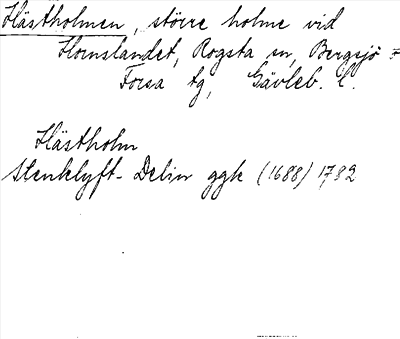 Hästholmen, större holme vid
Hornslandet, Rogsta sn, Bergsjö o
Forsa tg, Gävleb. l.
Hästholm
Stenklyft- Delin ggk (1688) 1782